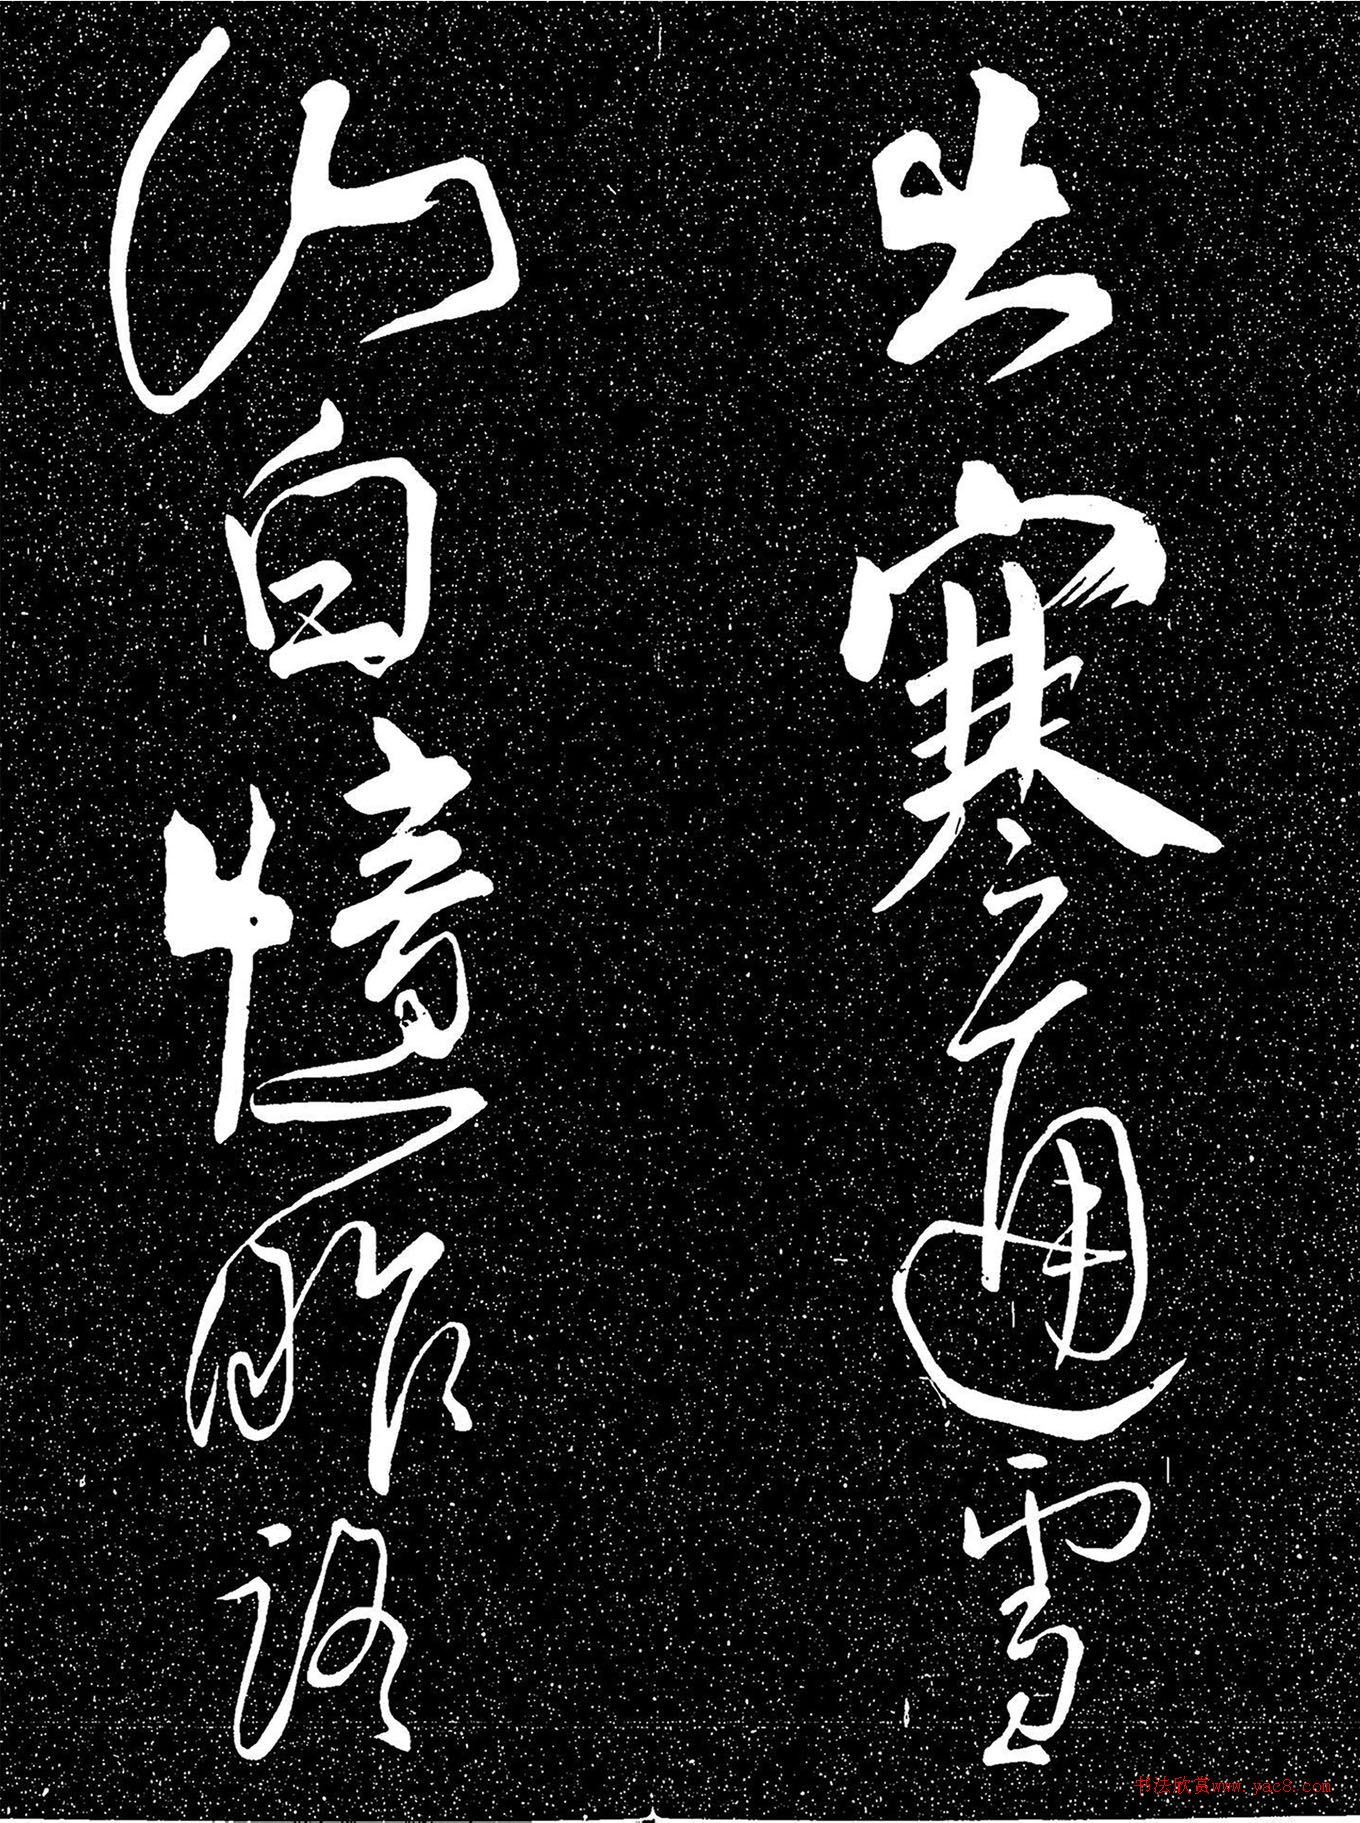 出寒通雪
山白憶昨路
书法欣赏www.yac8.com